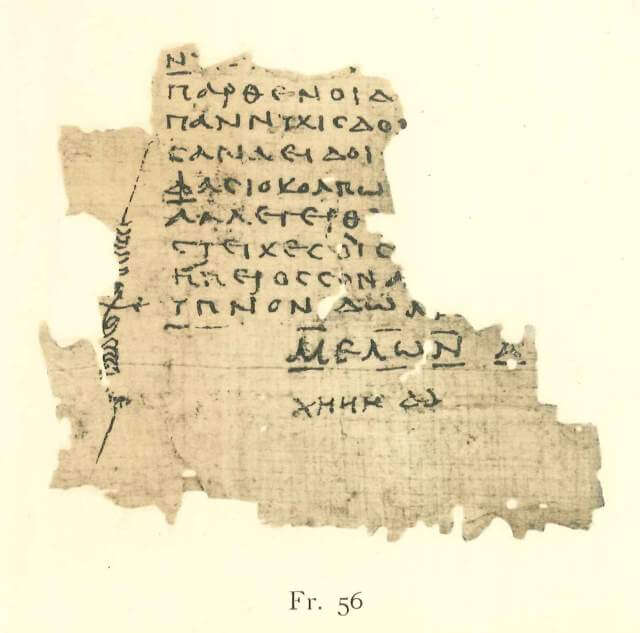 Ν
ΠΑΡΘΕΝΟΙΔ
ΠΑΝΝΥΧΙϹΔΟ
ϹΑΝΑΕΙΔΟΙ
ΦΑϹΙΟΚΟΛΠΩ
ΑΛΛΕΓΕΡΘ
ϹΤΕΙΧΕϹΟΙϹ
ΗΠΕΡΟϹϹΟΝΑ
ΥΠΝΟΝ ΔΩΜ
ΜΕΛΩΝ Α
ΧΗΗΗ ΔΔ
Fr. 56